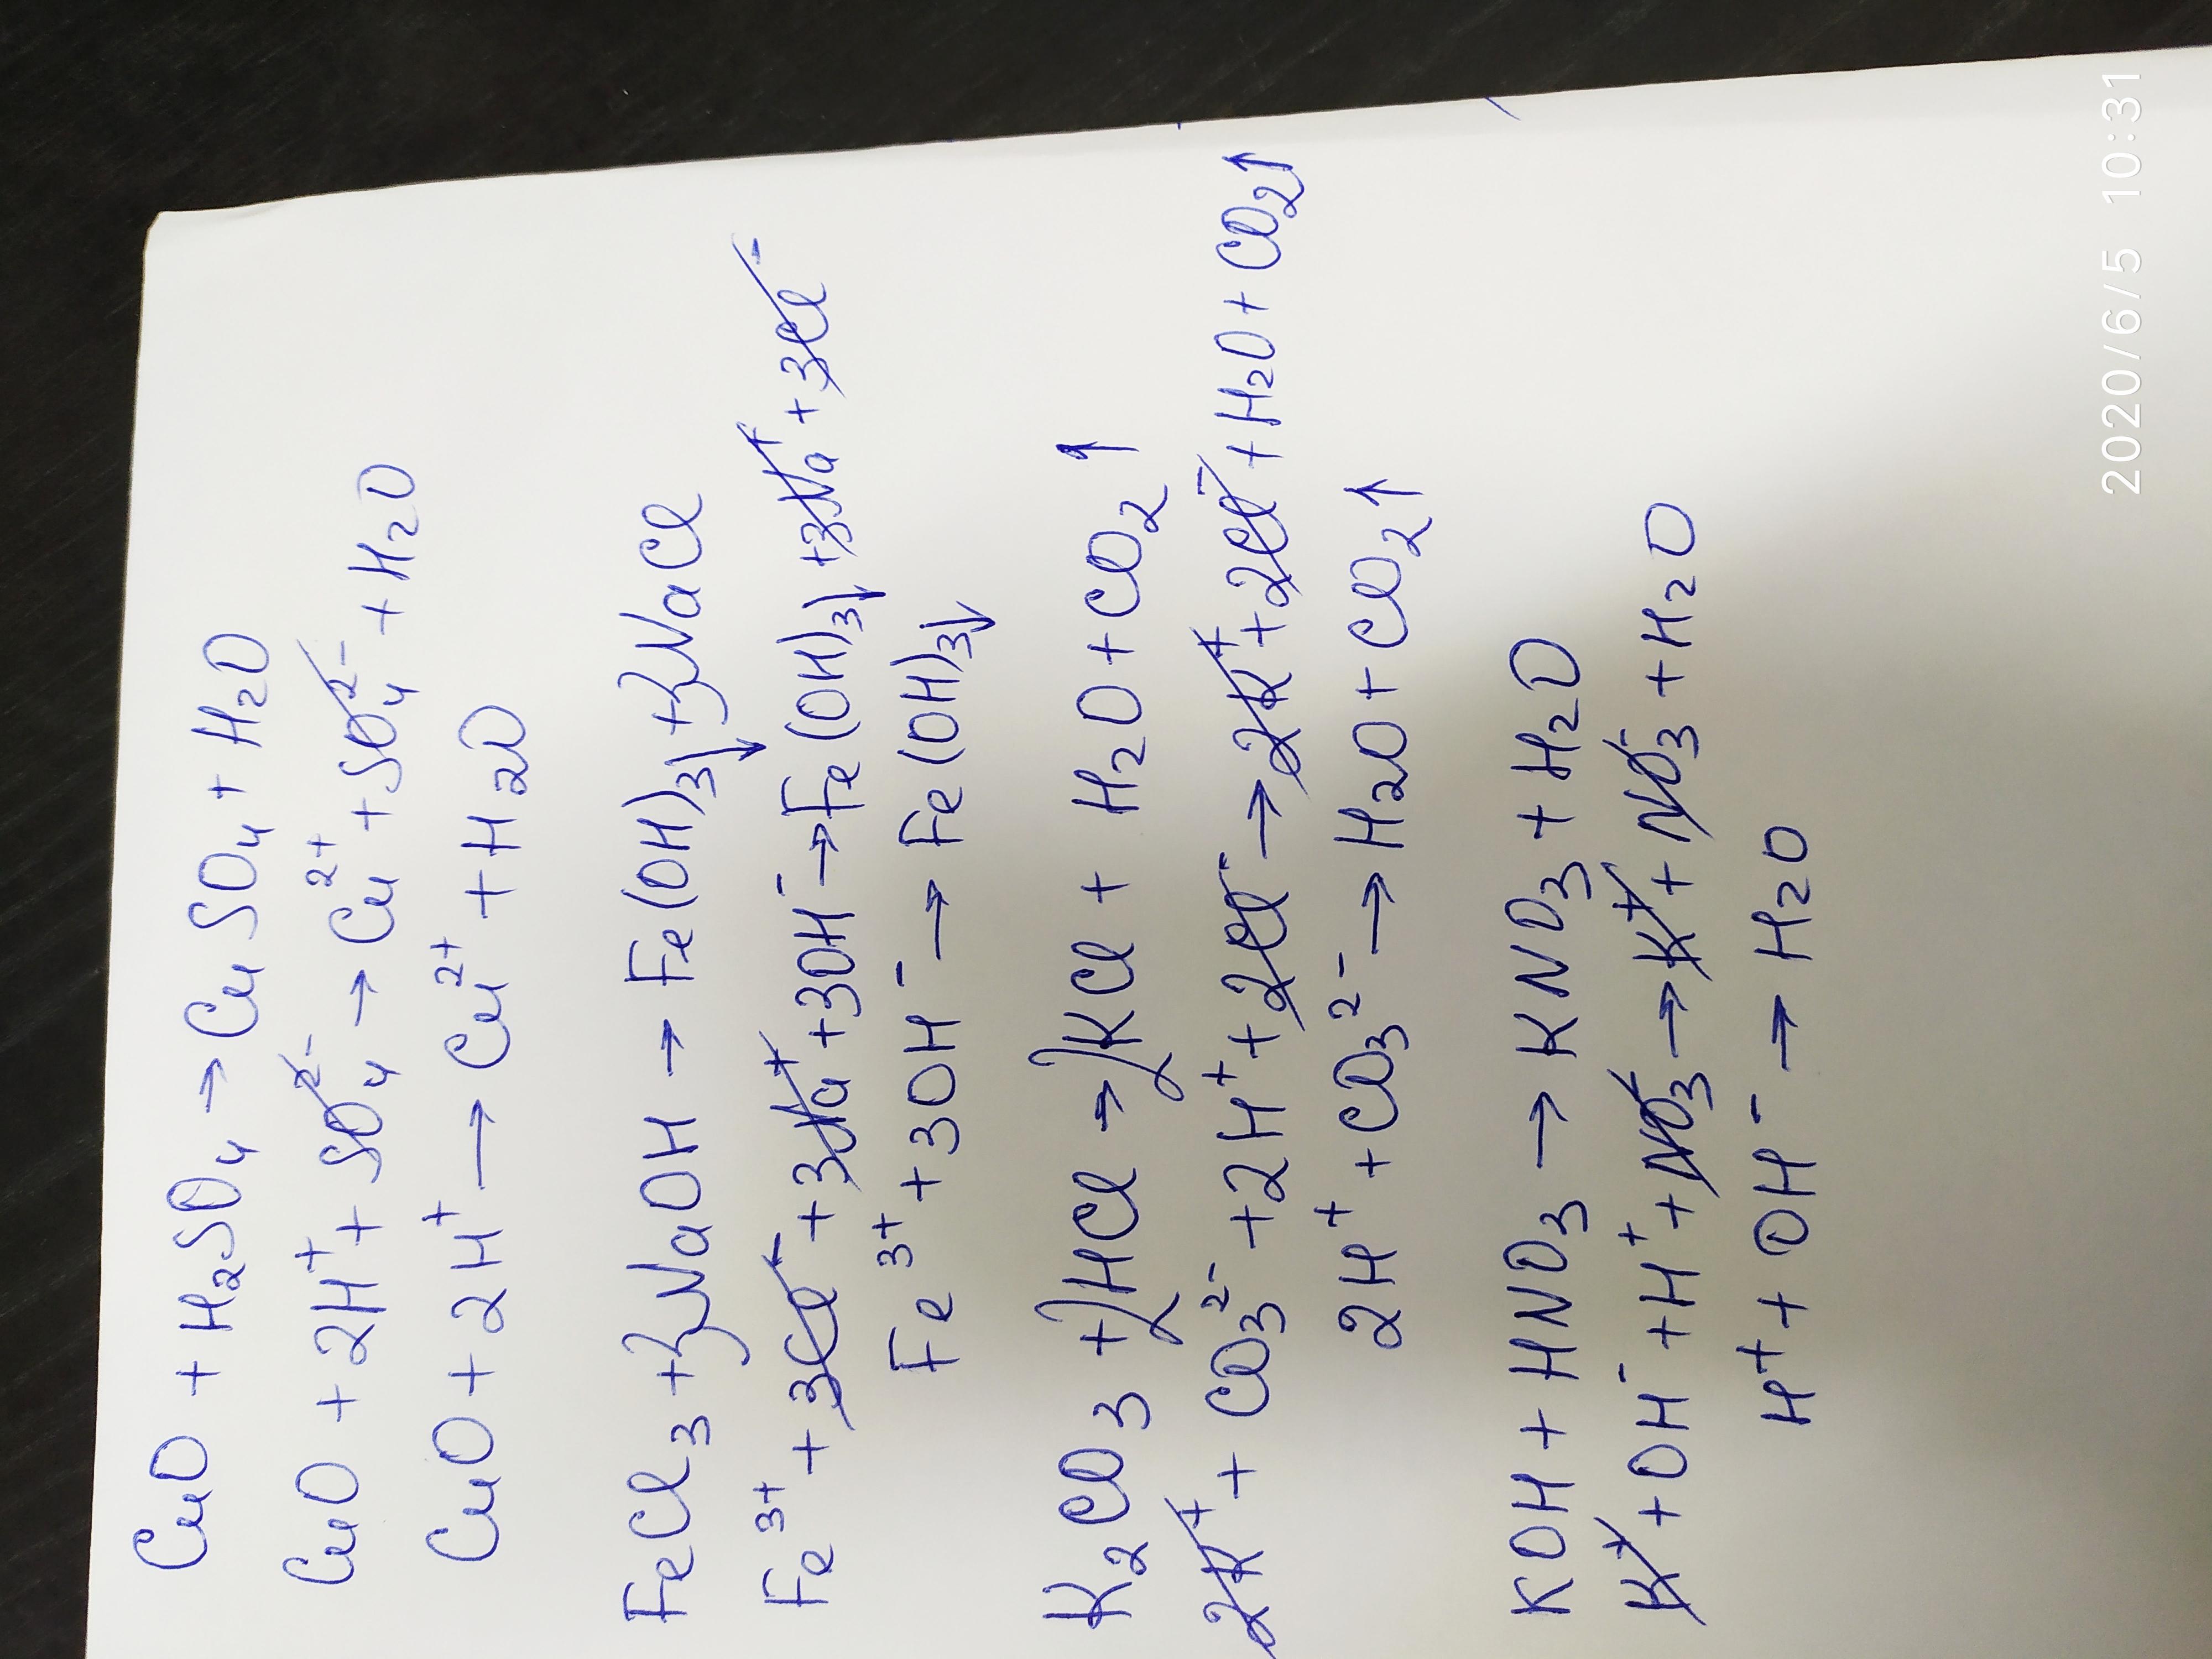 CuO + H₂SO₄ → CuSO₄ + H₂O
CuO + 2H⁺ + SO₄²⁻ → Cu²⁺ + SO₄²⁻ + H₂O
CuO + 2H⁺ → Cu²⁺ + H₂O
FeCl₃ + 3NaOH → Fe(OH)₃↓ + 3NaCl
Fe³⁺ + 3Cl⁻ + 3Na⁺ + 3OH⁻ → Fe(OH)₃↓ + 3Na⁺ + 3Cl⁻
Fe³⁺ + 3OH⁻ → Fe(OH)₃↓
K₂CO₃ + 2HCl → 2KCl + H₂O + CO₂↑
2K⁺ + CO₃²⁻ + 2H⁺ + 2Cl⁻ → 2K⁺ + 2Cl⁻ + H₂O + CO₂↑
2H⁺ + CO₃²⁻ → H₂O + CO₂↑
KOH + HNO₃ → KNO₃ + H₂O
K⁺ + OH⁻ + H⁺ + NO₃⁻ → K⁺ + NO₃⁻ + H₂O
H⁺ + OH⁻ → H₂O
2020/6/5 10:31